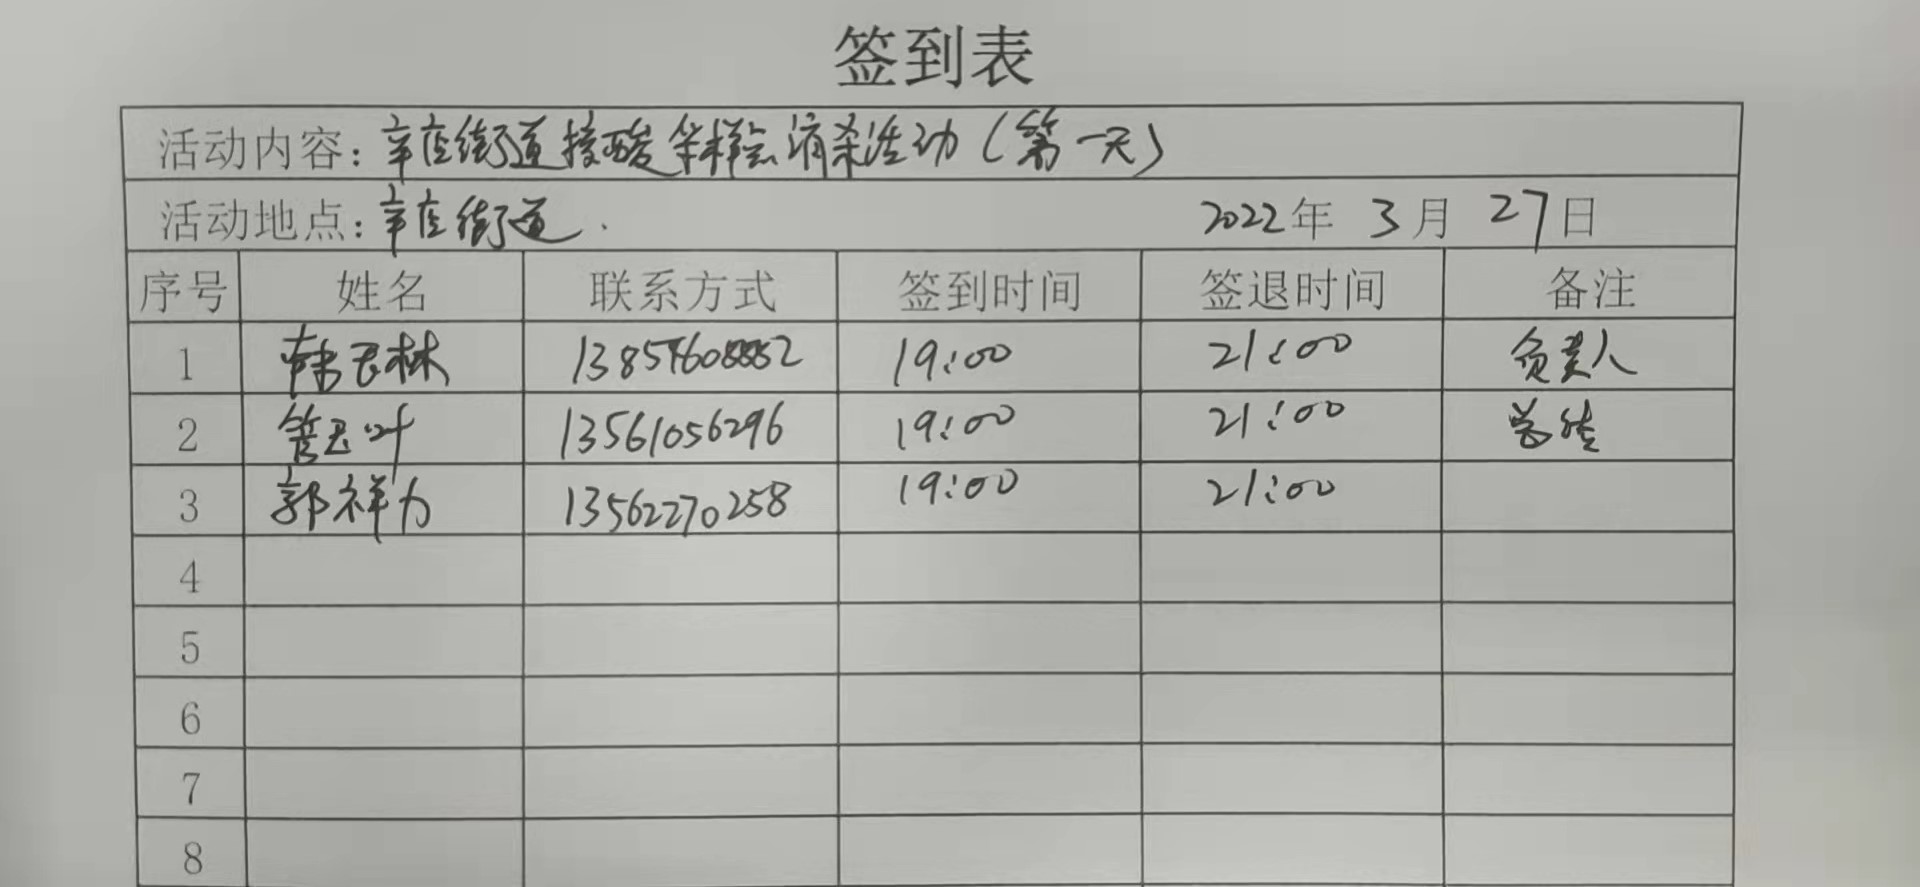 签到表
活动内容：辛店街道核酸采样点消杀活动（第一天）
活动地点：辛店街道. 2022年 3月 27日
序号 姓名 联系方式 签到时间 签退时间 备注
1 林 19:00 21:00 负责人
2 管玉叶 13561056296 19:00 21:00
3 郭祥力 13562270258 19:00 21:00
4
5
6
7
8